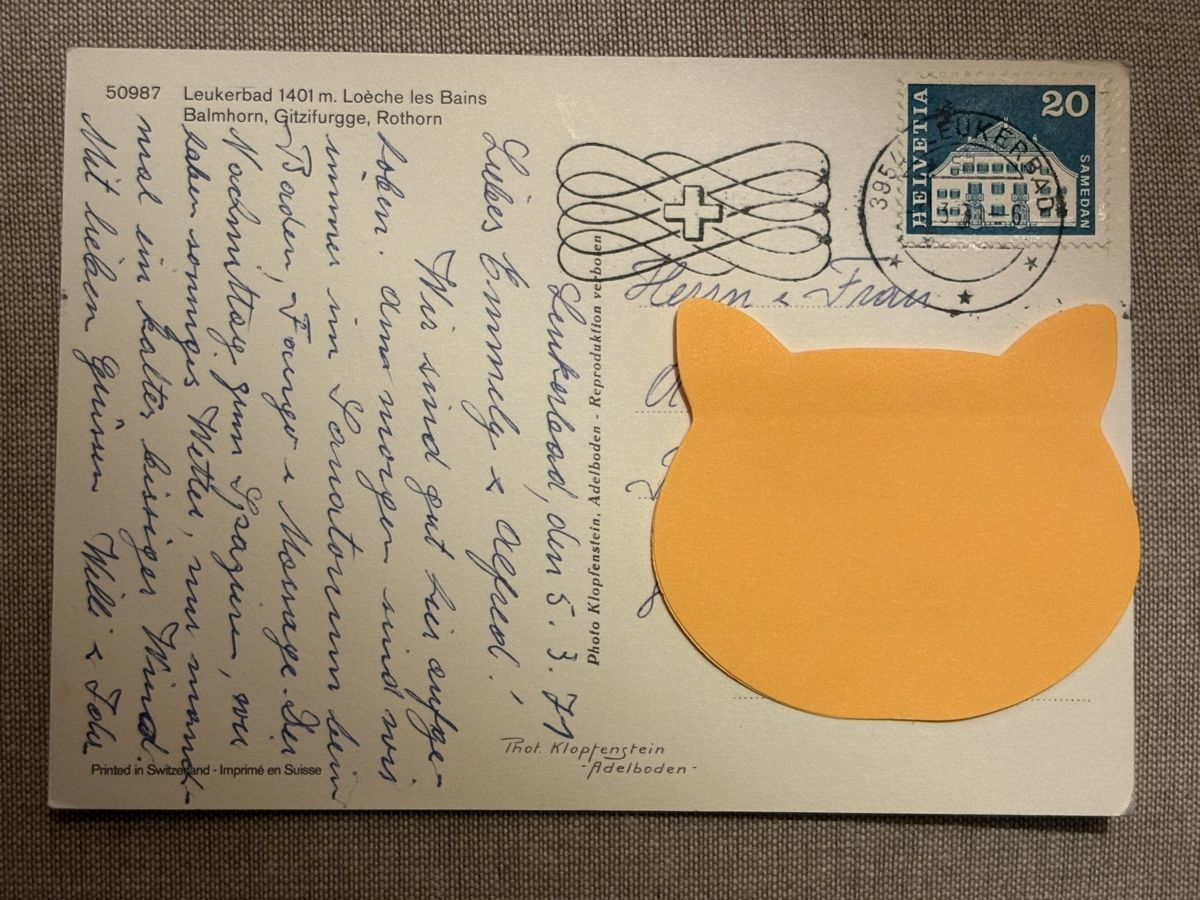 50987 Leukerbad 1401 m. Loèche les Bains
Balmhorn, Gitzifurgge, Rothorn
HELVETIA
20
SAMEDAN
3954 LEUKERBAD
Leukerbad, den 5. 3. 71
Liebes Emmely & Alfred!
Wir sind gut hier aufge-
hoben. Am morgen sind wir
immer im Sanatorium beim
Baden, Fango & Massage. Der
Nachmittag zum Spazieren, wir
haben sonniges Wetter, nur manch-
mal ein kalter bissiger Wind.
Mit lieben Grüssen Willi &
Photo Klopfenstein, Adelboden - Reproduktion verboten
Herrn & Frau
Phot. Klopfenstein
- Adelboden -
Printed in Switzerland - Imprimé en Suisse